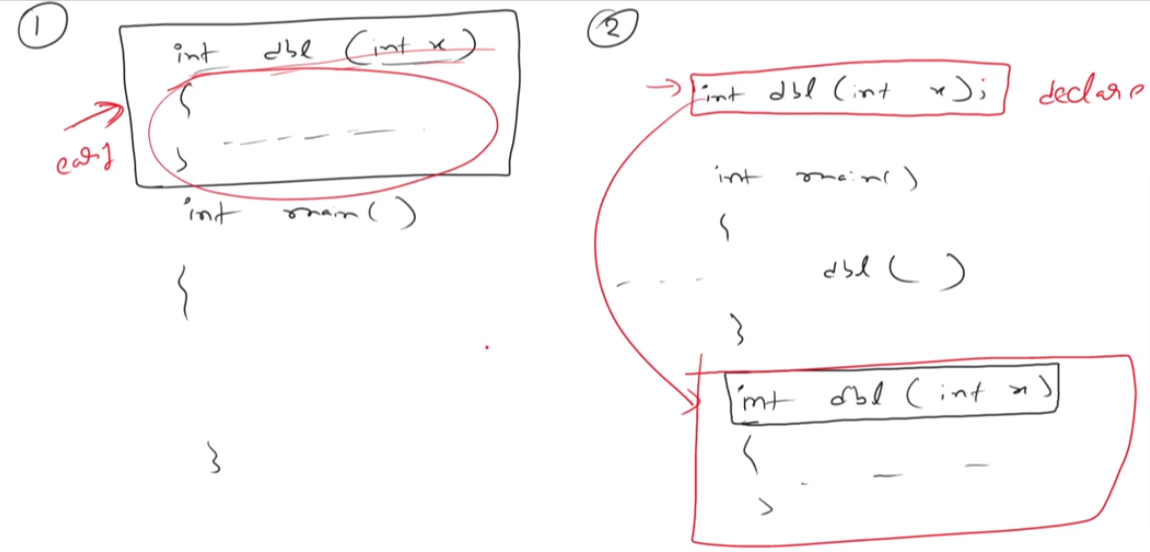 1
int dbl (int x)
{
}
easy
int main()
{
}
2
int dbl (int x); declare
int main()
{
dbl ( )
}
int dbl (int x)
{
}